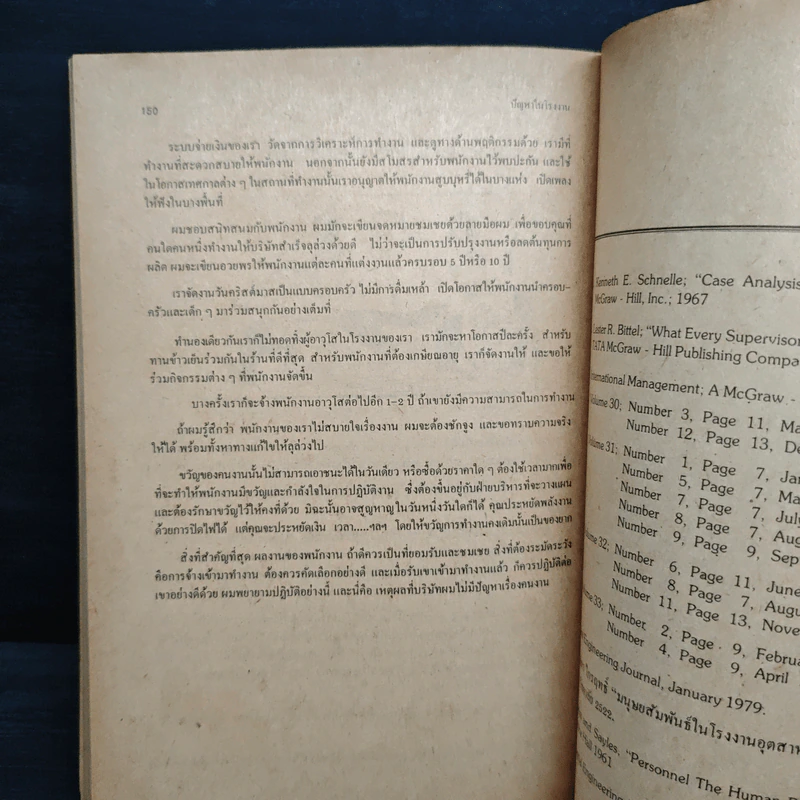 150
ปัญหาในโรงงาน
ระบบจ่ายเงินของเรา วัดจากการวิเคราะห์การทำงาน และดูทางด้านพฤติกรรมด้วย เรามีที่
ทำงานที่สะดวกสบายให้พนักงาน นอกจากนั้นยังมีสโมสรสำหรับพนักงานไว้พบปะกัน และใช้
ในโอกาสเทศกาลต่าง ๆ ในสถานที่ทำงานนั้นเราอนุญาตให้พนักงานสูบบุหรี่ได้ในบางแห่ง เปิดเพลง
ให้ฟังในบางพื้นที่
ผมชอบสนิทสนมกับพนักงาน ผมมักจะเขียนจดหมายชมเชยด้วยลายมือผม เพื่อขอบคุณที่
คนใดคนหนึ่งทำงานให้บริษัทสำเร็จลุล่วงด้วยดี ไม่ว่าจะเป็นการปรับปรุงงานหรือลดต้นทุนการ
ผลิต ผมจะเขียนอวยพรให้พนักงานแต่ละคนที่แต่งงานแล้วครบรอบ 5 ปีหรือ 10 ปี
เราจัดงานวันคริสต์มาสเป็นแบบครอบครัว ไม่มีการดื่มเหล้า เปิดโอกาสให้พนักงานนำครอบ-
ครัวและเด็ก ๆ มาร่วมสนุกกันอย่างเต็มที่
ทำนองเดียวกันเราก็ไม่ทอดทิ้งผู้อาวุโสในโรงงานของเรา เรามักจะหาโอกาสปีละครั้ง สำหรับ
ทานข้าวเย็นร่วมกันในร้านที่ดีที่สุด สำหรับพนักงานที่ต้องเกษียณอายุ เราก็จัดงานให้ และขอให้
ร่วมกิจกรรมต่าง ๆ ที่พนักงานจัดขึ้น
บางครั้งเราก็จะจ้างพนักงานอาวุโสต่อไปอีก 1-2 ปี ถ้าเขายังมีความสามารถในการทำงาน
ถ้าผมรู้สึกว่า พนักงานของเราไม่สบายใจเรื่องงาน ผมจะต้องชักจูง และขอทราบความจริง
ให้ได้ พร้อมทั้งหาทางแก้ไขให้ลุล่วงไป
ขวัญของคนงานนั้นไม่สามารถเอาชนะได้ในวันเดียว หรือซื้อด้วยราคาใด ๆ ต้องใช้เวลามากเพื่อ
ที่จะทำให้พนักงานมีขวัญและกำลังใจในการปฏิบัติงาน ซึ่งต้องขึ้นอยู่กับฝ่ายบริหารที่จะวางแผน
และต้องรักษาขวัญไว้ให้คงที่ด้วย มิฉะนั้นอาจสูญหายในวันหนึ่งวันใดก็ได้ คุณประหยัดพลังงาน
ด้วยการปิดไฟได้ แต่คุณจะประหยัดเงิน เวลา.....ฯลฯ โดยให้ขวัญการทำงานคงเดิมนั้นเป็นของยาก
สิ่งที่สำคัญที่สุด ผลงานของพนักงาน ถ้าดีควรเป็นที่ยอมรับและชมเชย สิ่งที่ต้องระมัดระวัง
คือการจ้างเข้ามาทำงาน ต้องควรคัดเลือกอย่างดี และเมื่อรับเขาเข้ามาทำงานแล้ว ก็ควรปฏิบัติต่อ
เขาอย่างดีด้วย ผมพยายามปฏิบัติอย่างนี้ และนี่คือ เหตุผลที่บริษัทผมไม่มีปัญหาเรื่องคนงาน
Kenneth E. Schnelle; "Case Analysis
McGraw - Hill, Inc.; 1967
Lester R. Bittel; "What Every Supervisor
TATA McGraw - Hill Publishing Compa
International Management; A McGraw -
Volume 30; Number 3, Page 11, Ma
Number 12, Page 13, De
Volume 31; Number 1, Page 7, Jan
Number 5, Page 7, Ma
Number 7, Page 7, July
Number 8, Page 7, Aug
Number 9, Page 9, Sep
Volume 32; Number 6, Page 11, June
Number 8, Page 7, Augu
Number 11, Page 13, Nove
Volume 33; Number 2, Page 9, Februa
Number 4, Page 9, April
Engineering Journal, January 1979.
"มนุษยสัมพันธ์ในโรงงานอุตสาห
2522.
and Sayles, "Personnel The Human
Hall 1961
Engineering